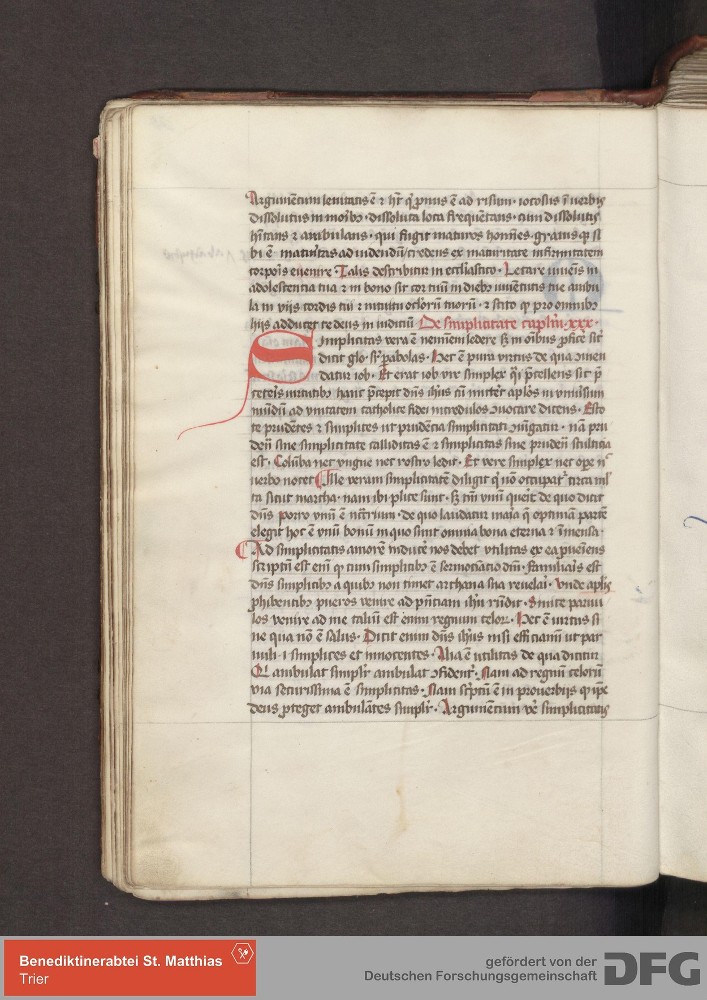 Argumentum leuitatis ē ⁊ hr̄ q̇ ꝓnus ē ad risum · iocosus ī uerbis
dissolutus in moībꝰ · dissoluta loca frequētans · cum dissolutis
hītans ⁊ ambulans · qui fugit maturos homīes · grauis qꝫ si
bi ē maturitas ad uidendū credens ex maturitate infirmitatem
corpoīs euenire · Talis describitur in ecclīastico · Letare iuuēis in
adolescentia tua ⁊ in bono sit cor tuū in diebꝰ iuuētutis tue ambu
la in viis cordis tui ⁊ intuitu oclōrū tuorū · ⁊ scito qꝫ pro omnibꝰ
hiis adducet te deus in iudiciū · De simplicitate cāplm̄ · xxx ·
Simplicitas vera ē neminem ledere sꝫ in oībus ꝓficē sic̄
dicit glo · sr̄ ꝑabolas · Hec ē pura virtus de qua ↄmen
datur iob · Et erat iob vir simplex q̇ p̄cellens sic p̄
ceteīs uirtutibꝰ hanc p̄cepit dn̄s ih̄us cū mitteʳ aplōs in vniūsum
mūdū ad vnitatem catholice fidei incredulos ↄuocare dicens · Esto
te prudētes ⁊ simplices ut prudēcia simplicitati ↄiūgatur · nā pru
den̄ sine simplicitate calliditas ē ⁊ simplicitas sine pruden̄ stulticia
est · Colūba nec vngue nec rostro ledit · Et vere simplex nec oꝑe nᶜ
uerbo nocet Ille veram simplicitatē diligit q̇ nō occupatʳ circa ml̄
ta sicut martha · nam ibi plice sunt · sꝫ tm̄ vnū querit de quo dicit
dn̄s porro vnū ē nccr̄ium · de quo laudatur maīa q̇ optimā partē
elegit hoc ē vnū bonū in quo sunt omnia bona eterna ⁊ īmensa ·
Ad simplicitatis amorē inducē nos debet vtilitas ex ea ꝓueīens
scriptū est em̄ qꝫ cum simplicibꝰ ē sermocinatio dīn · familiaīs est
dn̄s simplicibꝰ a quibꝰ non timet archana sua reuelaī · Vnde aplīs
ꝓhibentibꝰ pueros venire ad p̄nciam ih̄u rn̄dit · Sinite paruu
los venire ad me talium est enim regnum celorꝝ · Hec ē uirtus si
ne qua nō ē salus · Dicit enim dn̄s ih̄us nisi efficiamī ut par
uuli · i · simplices et innocentes · Alia ē utilitas de qua dicitur
Qi ambulat simplr̄ ambulat ↄfidentʳ · Nam ad regnū celorū
via securissima ē simplicitas · Nam sc̄ptū ē in prouerbiis q̇ ip̄e
deus ꝓteget ambulātes simplr̄ · Argumentum v̄e simplicitatis
Benediktinerabtei St. Matthias
Trier
gefördert von der
Deutschen Forschungsgemeinschaft
DFG